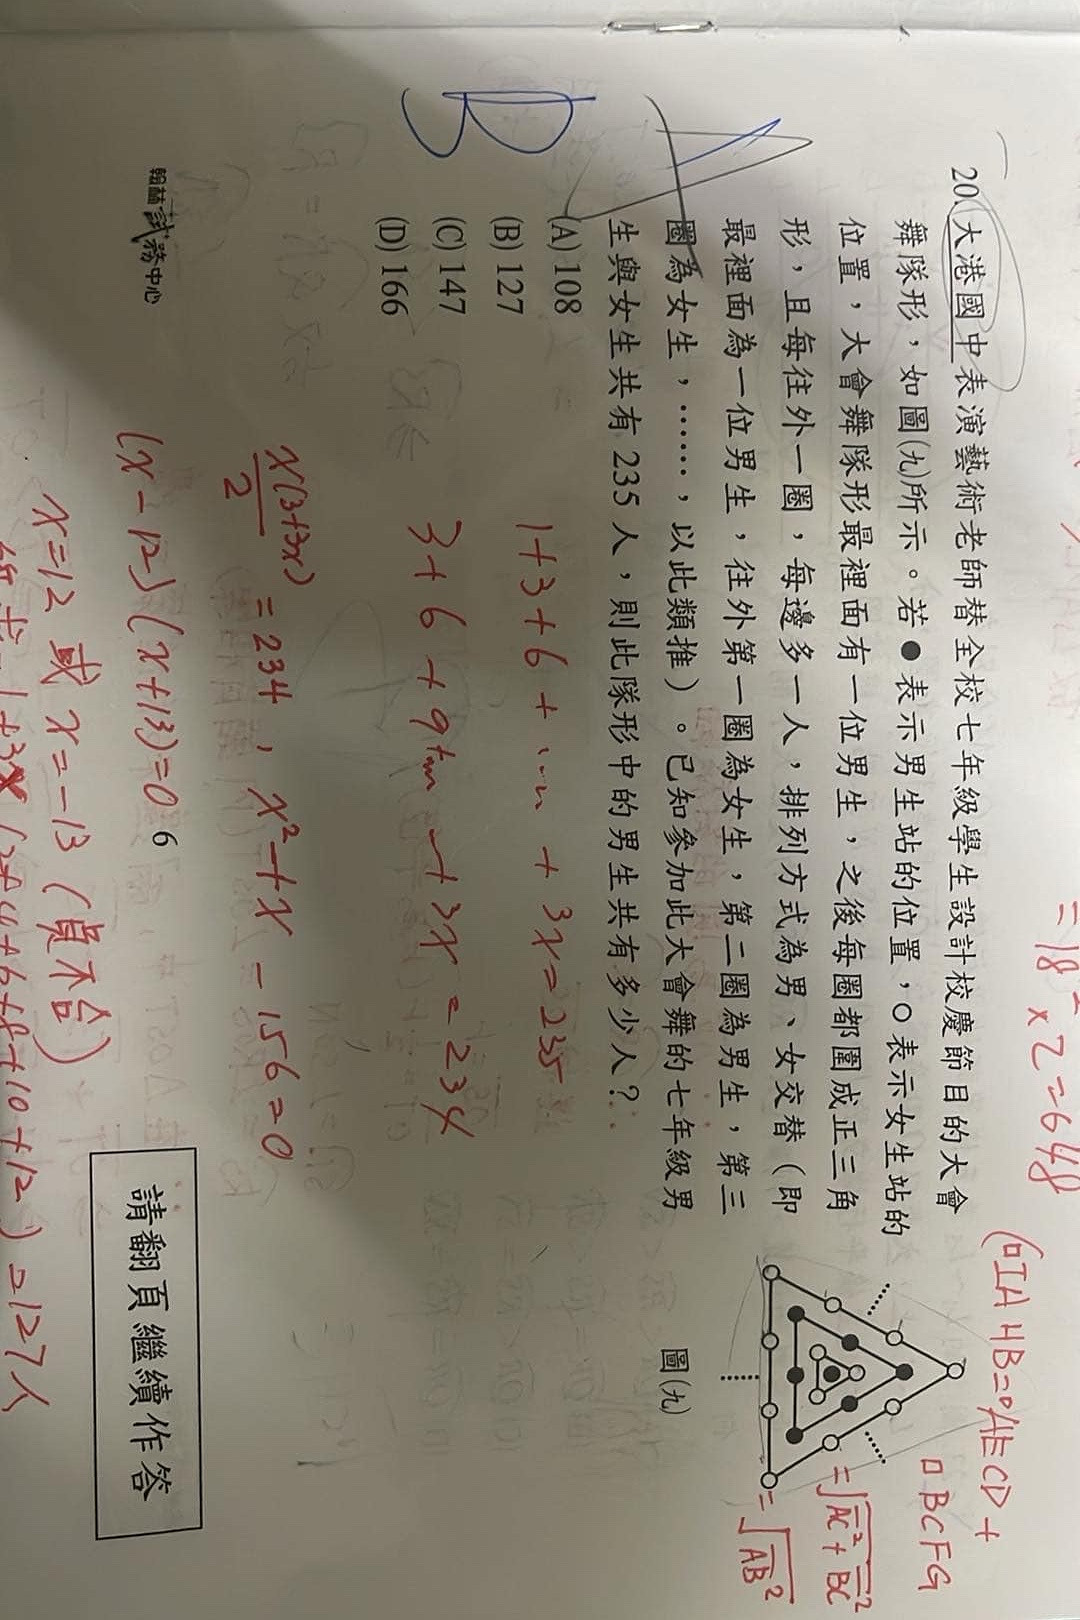 = 18² × 2 = 648
(□IAHB = □AECD +
□BCFG
= √AC² + BC²
= √AB²
20. 大港國中表演藝術老師替全校七年級學生設計校慶節目的大會
舞隊形，如圖(九)所示。若●表示男生站的位置，○表示女生站的
位置，大會舞隊形最裡面有一位男生，之後每圈都圍成正三角
形，且每往外一圈，每邊多一人，排列方式為男、女交替（即
最裡面為一位男生，往外第一圈為女生，第二圈為男生，第三
圈為女生，……，以此類推）。已知參加此大會舞的七年級男
生與女生共有 235 人，則此隊形中的男生共有多少人？
圖(九)
(A) 108
(B) 127
(C) 147
(D) 166
A
B
1+3+6+……+3x=235
3+6+9+……+3x=234
x(3+3x)/2 = 234, x²+x-156=0
(x-12)(x+13)=0
x=12 或 x=-13 (負不合)
1+3×(2+4+6+8+10+12)=127人
翰林試務中心
6
請翻頁繼續作答